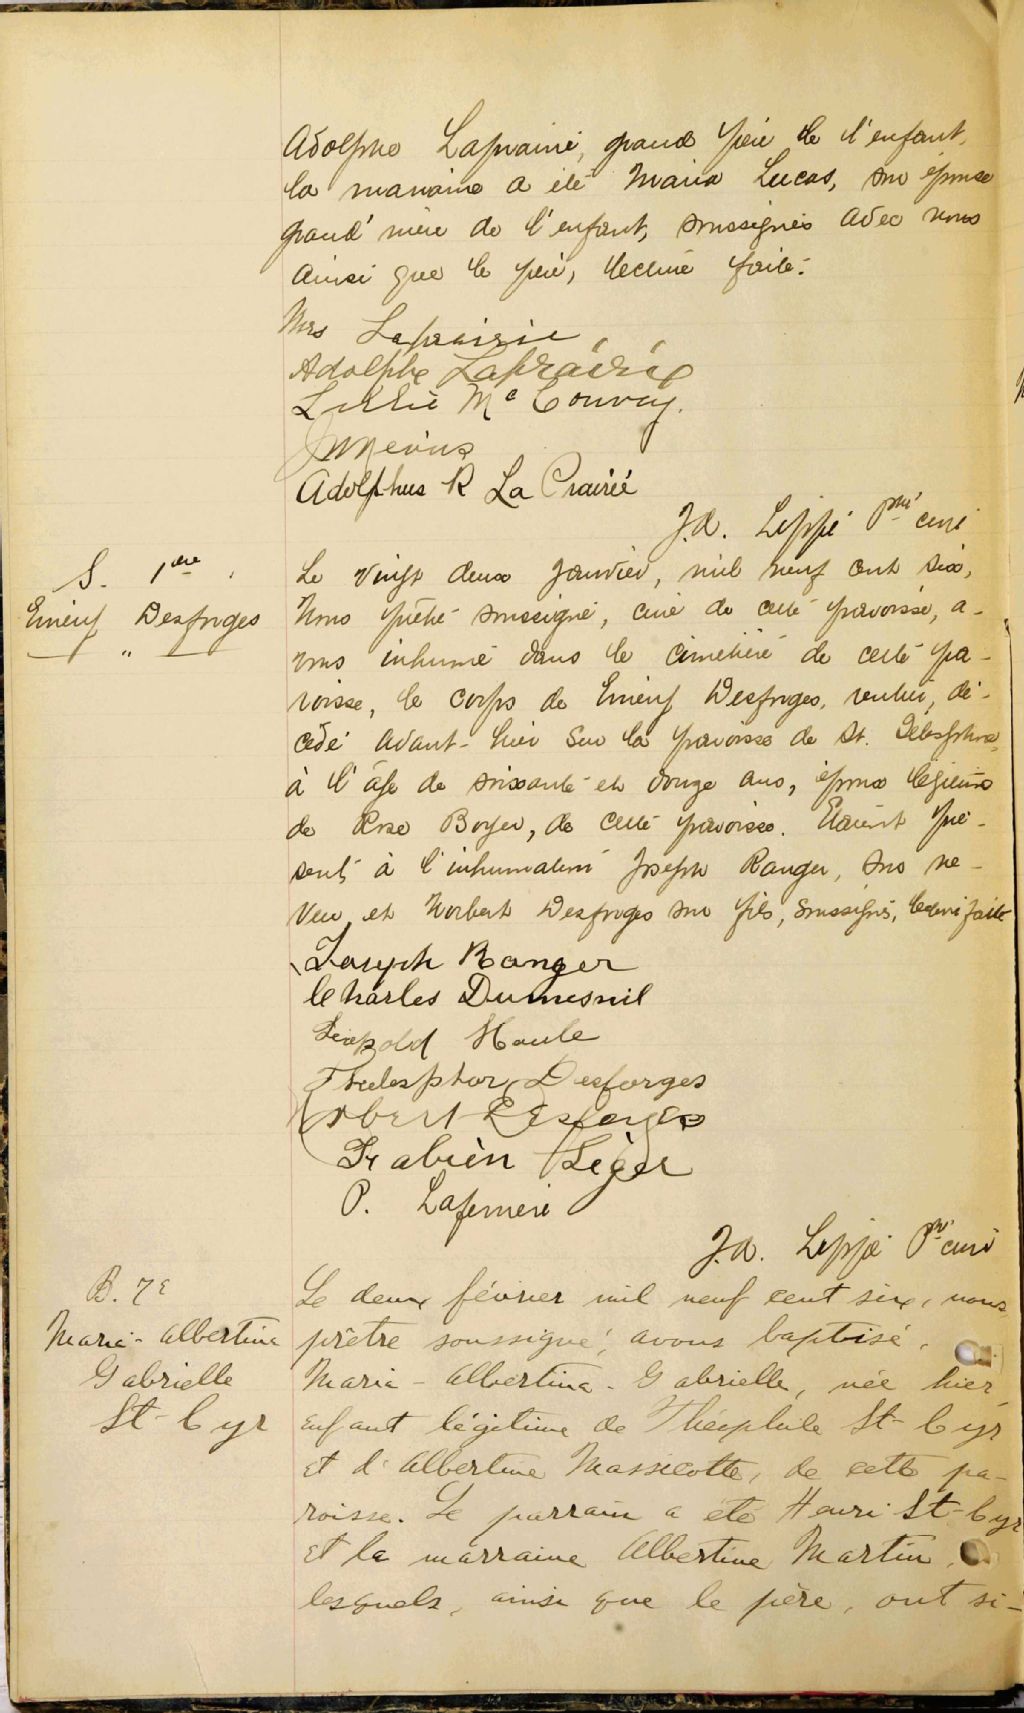 Adolphe Laprairie, grand père de l'enfant,
la marraine a été Maria Lucas, son épouse
grand'mère de l'enfant, soussignés avec nous
ainsi que le père, lecture faite.
Mrs Laprairie
Adolphe Laprairie
Lillie Mc Convey.
Adolphus R La Prairie
J.A. Lippé Ptre curé
S. 1ère
Le vingt deux janvier, mil neuf cent six,
Emery Desforges
Nous prêtre soussigné, curé de cette paroisse, a-
vons inhumé dans le cimetière de cette pa-
roisse, le corps de Emery Desforges, rentier, dé-
cédé avant-hier sur la paroisse de St. Télesphore,
à l'âge de soixante et douze ans, époux légitime
de Rose Boyer, de cette paroisse. Etaient pré-
sents à l'inhumation Joseph Ranger, son ne-
veu et Norbert Desforges son fils, soussignés, lecture faite
Joseph Ranger
Charles Dumesnil
Léopold Houle
Thelesphor Desforges
Norbert Desforges
Frabièn Léger
P. Laferriere
J.A. Lippé Ptre curé
B. 7e
Le deux février mil neuf cent six, nous,
Marie-Albertine
prêtre soussigné, avons baptisé,
Gabrielle
Marie-Albertine-Gabrielle, née hier,
St-Cyr
enfant légitime de Théophile St-Cyr
et d'Albertine Massicotte, de cette pa-
roisse. Le parrain a été Henri St-Cyr
et la marraine Albertine Martin,
lesquels, ainsi que le père, ont si-